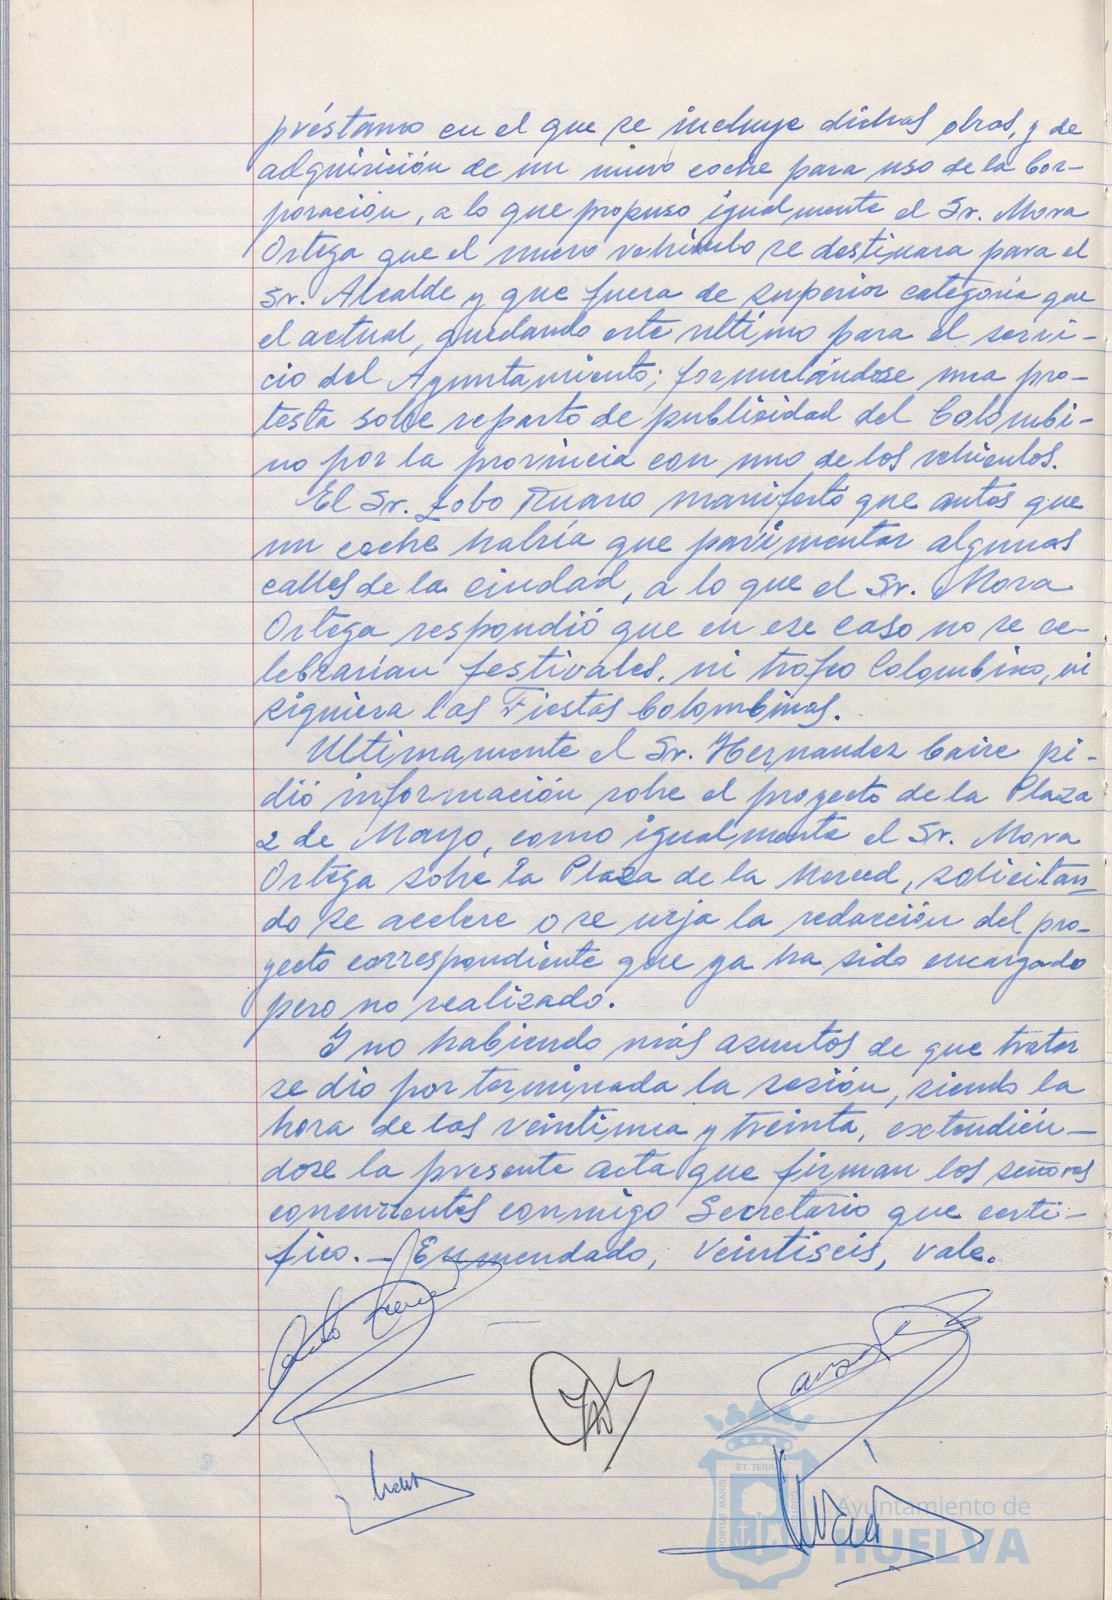 préstamo en el que se incluye dichas obras, y de
adquisición de un nuevo coche para uso de la Cor-
poración, a lo que propuso igualmente el Sr. Mora
Ortega que el nuevo vehículo se destinara para el
Sr. Alcalde y que fuera de superior categoria que
el actual, quedando este ultimo para el servi-
cio del Ayuntamiento; formulándose una pro-
testa sobre reparto de publicidad del Colombi-
no por la provincia con uno de los vehiculos.
El Sr. Lobo Ruano manifestó que antes que
un coche habría que pavimentar algunas
calles de la ciudad, a lo que el Sr. Mora
Ortega respondió que en ese caso no se ce-
lebrarian festivales, ni trofeo Colombino, ni
siquiera las Fiestas Colombinas.
Ultimamente el Sr. Hernandez Caire pi-
dió información sobre el proyecto de la Plaza
2 de Mayo, como igualmente el Sr. Mora
Ortega sobre la Plaza de la Merced, solicitan-
do se acelere o se urja la redacción del pro-
yecto correspondiente que ya ha sido encargado
pero no realizado.
Y no habiendo más asuntos de que tratar
se dio por terminada la sesión, siendo la
hora de las veintiuna y treinta, extendién-
dose la presente acta que firman los señores
concurrentes conmigo Secretario que certi-
fico. — Enmendado, veintiseis, vale.
ET TERRA
PORTUS MARIS
Ayuntamiento de
HUELVA